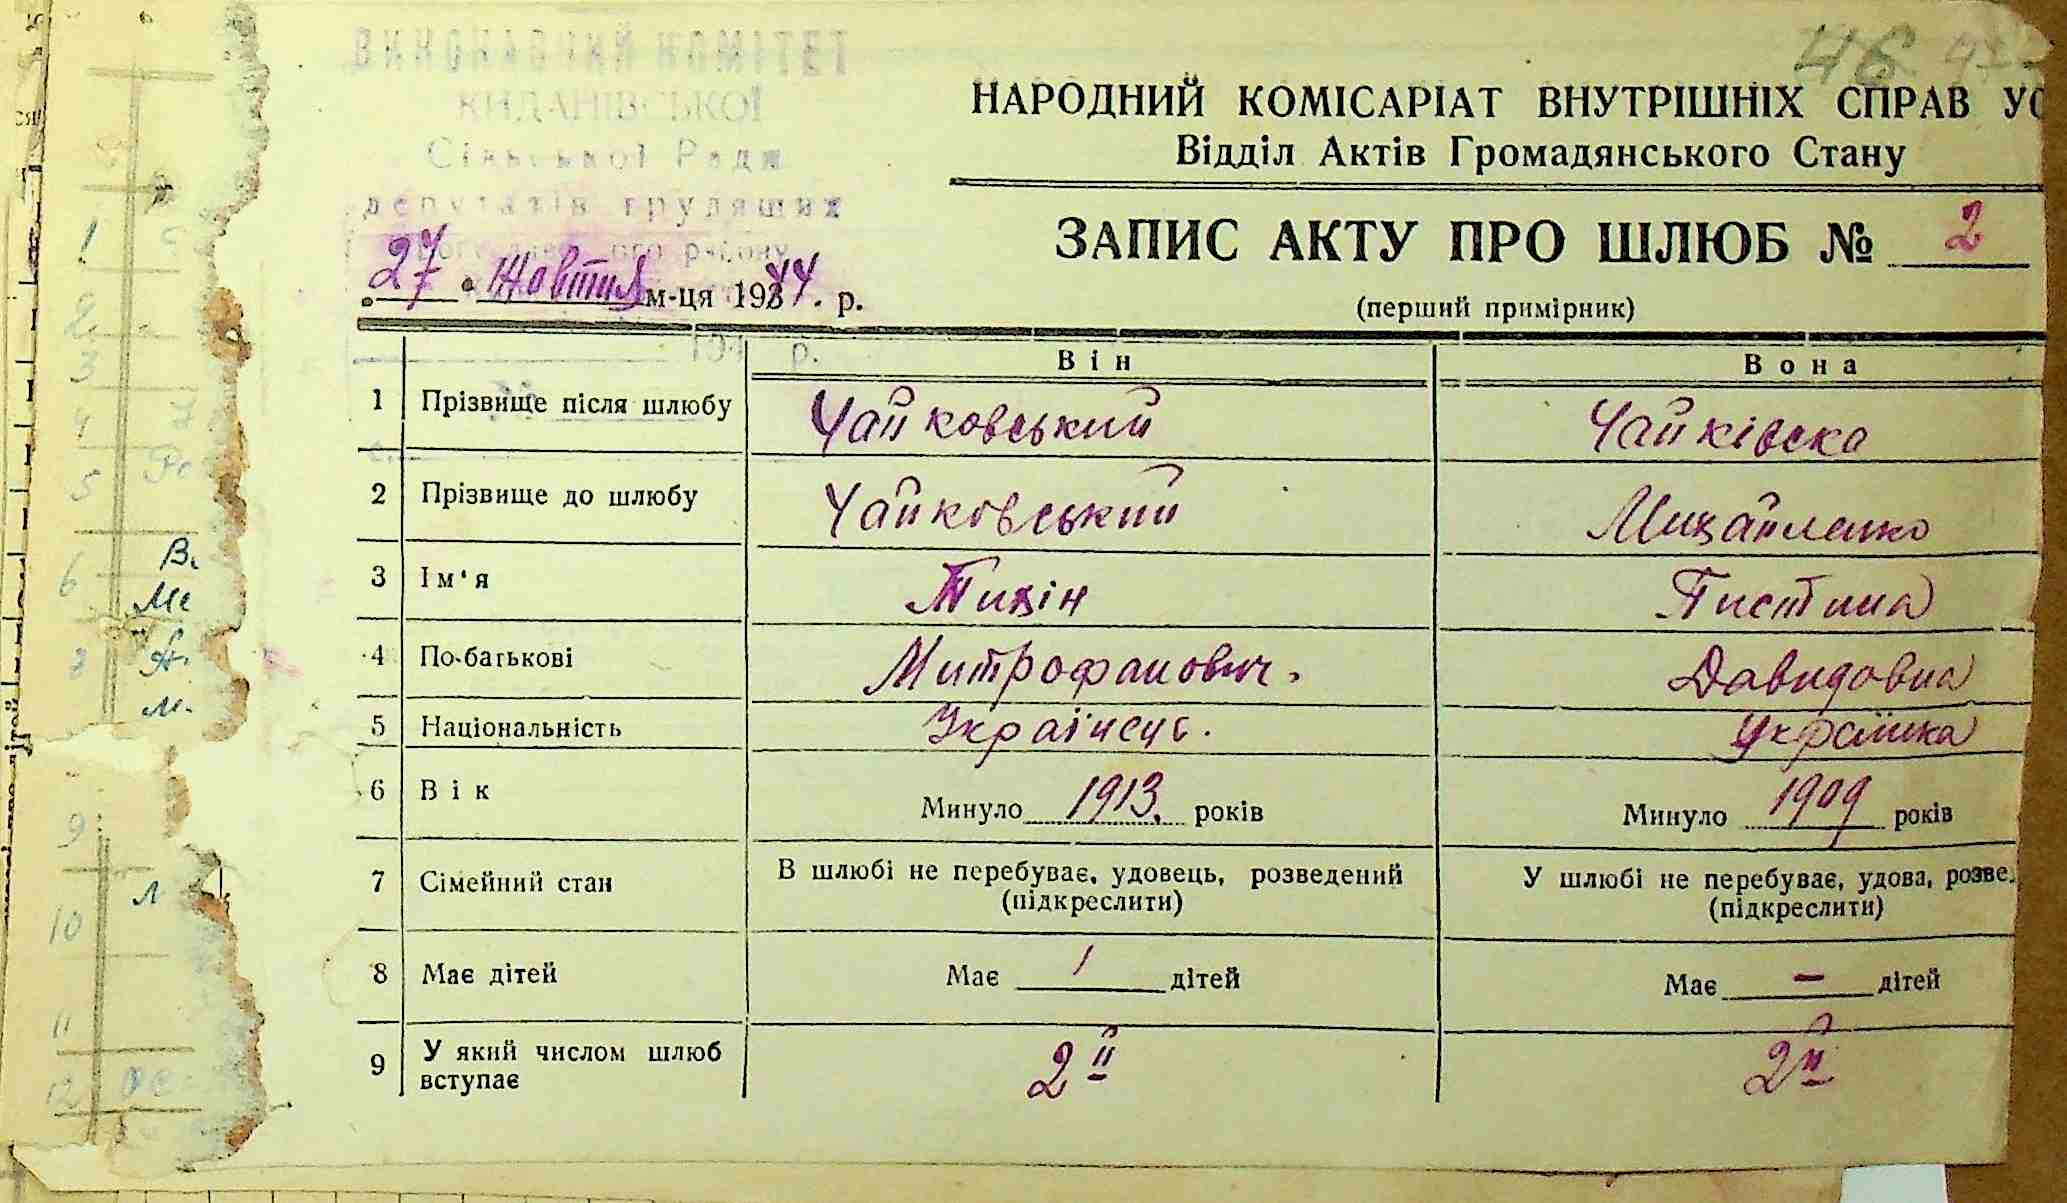 46
ВИКОНАВЧИЙ КОМІТЕТ
КИДАНІВСЬКОЇ
Сільської Ради
депутатів трудящих
району
194 р.
НАРОДНИЙ КОМІСАРІАТ ВНУТРІШНІХ СПРАВ УС
Відділ Актів Громадянського Стану
ЗАПИС АКТУ ПРО ШЛЮБ № 2
(перший примірник)
27 Жовтня м-ця 1944. р.
Він Вона
1 Прізвище після шлюбу Чайковський Чайківска
2 Прізвище до шлюбу Чайковський Михайленко
3 Ім'я Тихін Пистина
4 По-батькові Митрофанович. Давидовна
5 Національність Українець. Українка
6 Вік Минуло 1913. років Минуло 1909 років
7 Сімейний стан В шлюбі не перебуває, удовець, розведений (підкреслити) У шлюбі не перебуває, удова, розве. (підкреслити)
8 Має дітей Має 1 дітей Має – дітей
9 У який числом шлюб вступає 2й 2й
1
2
3
4
5
6 В.
Ме
8
м.
9
10 Л
11
12